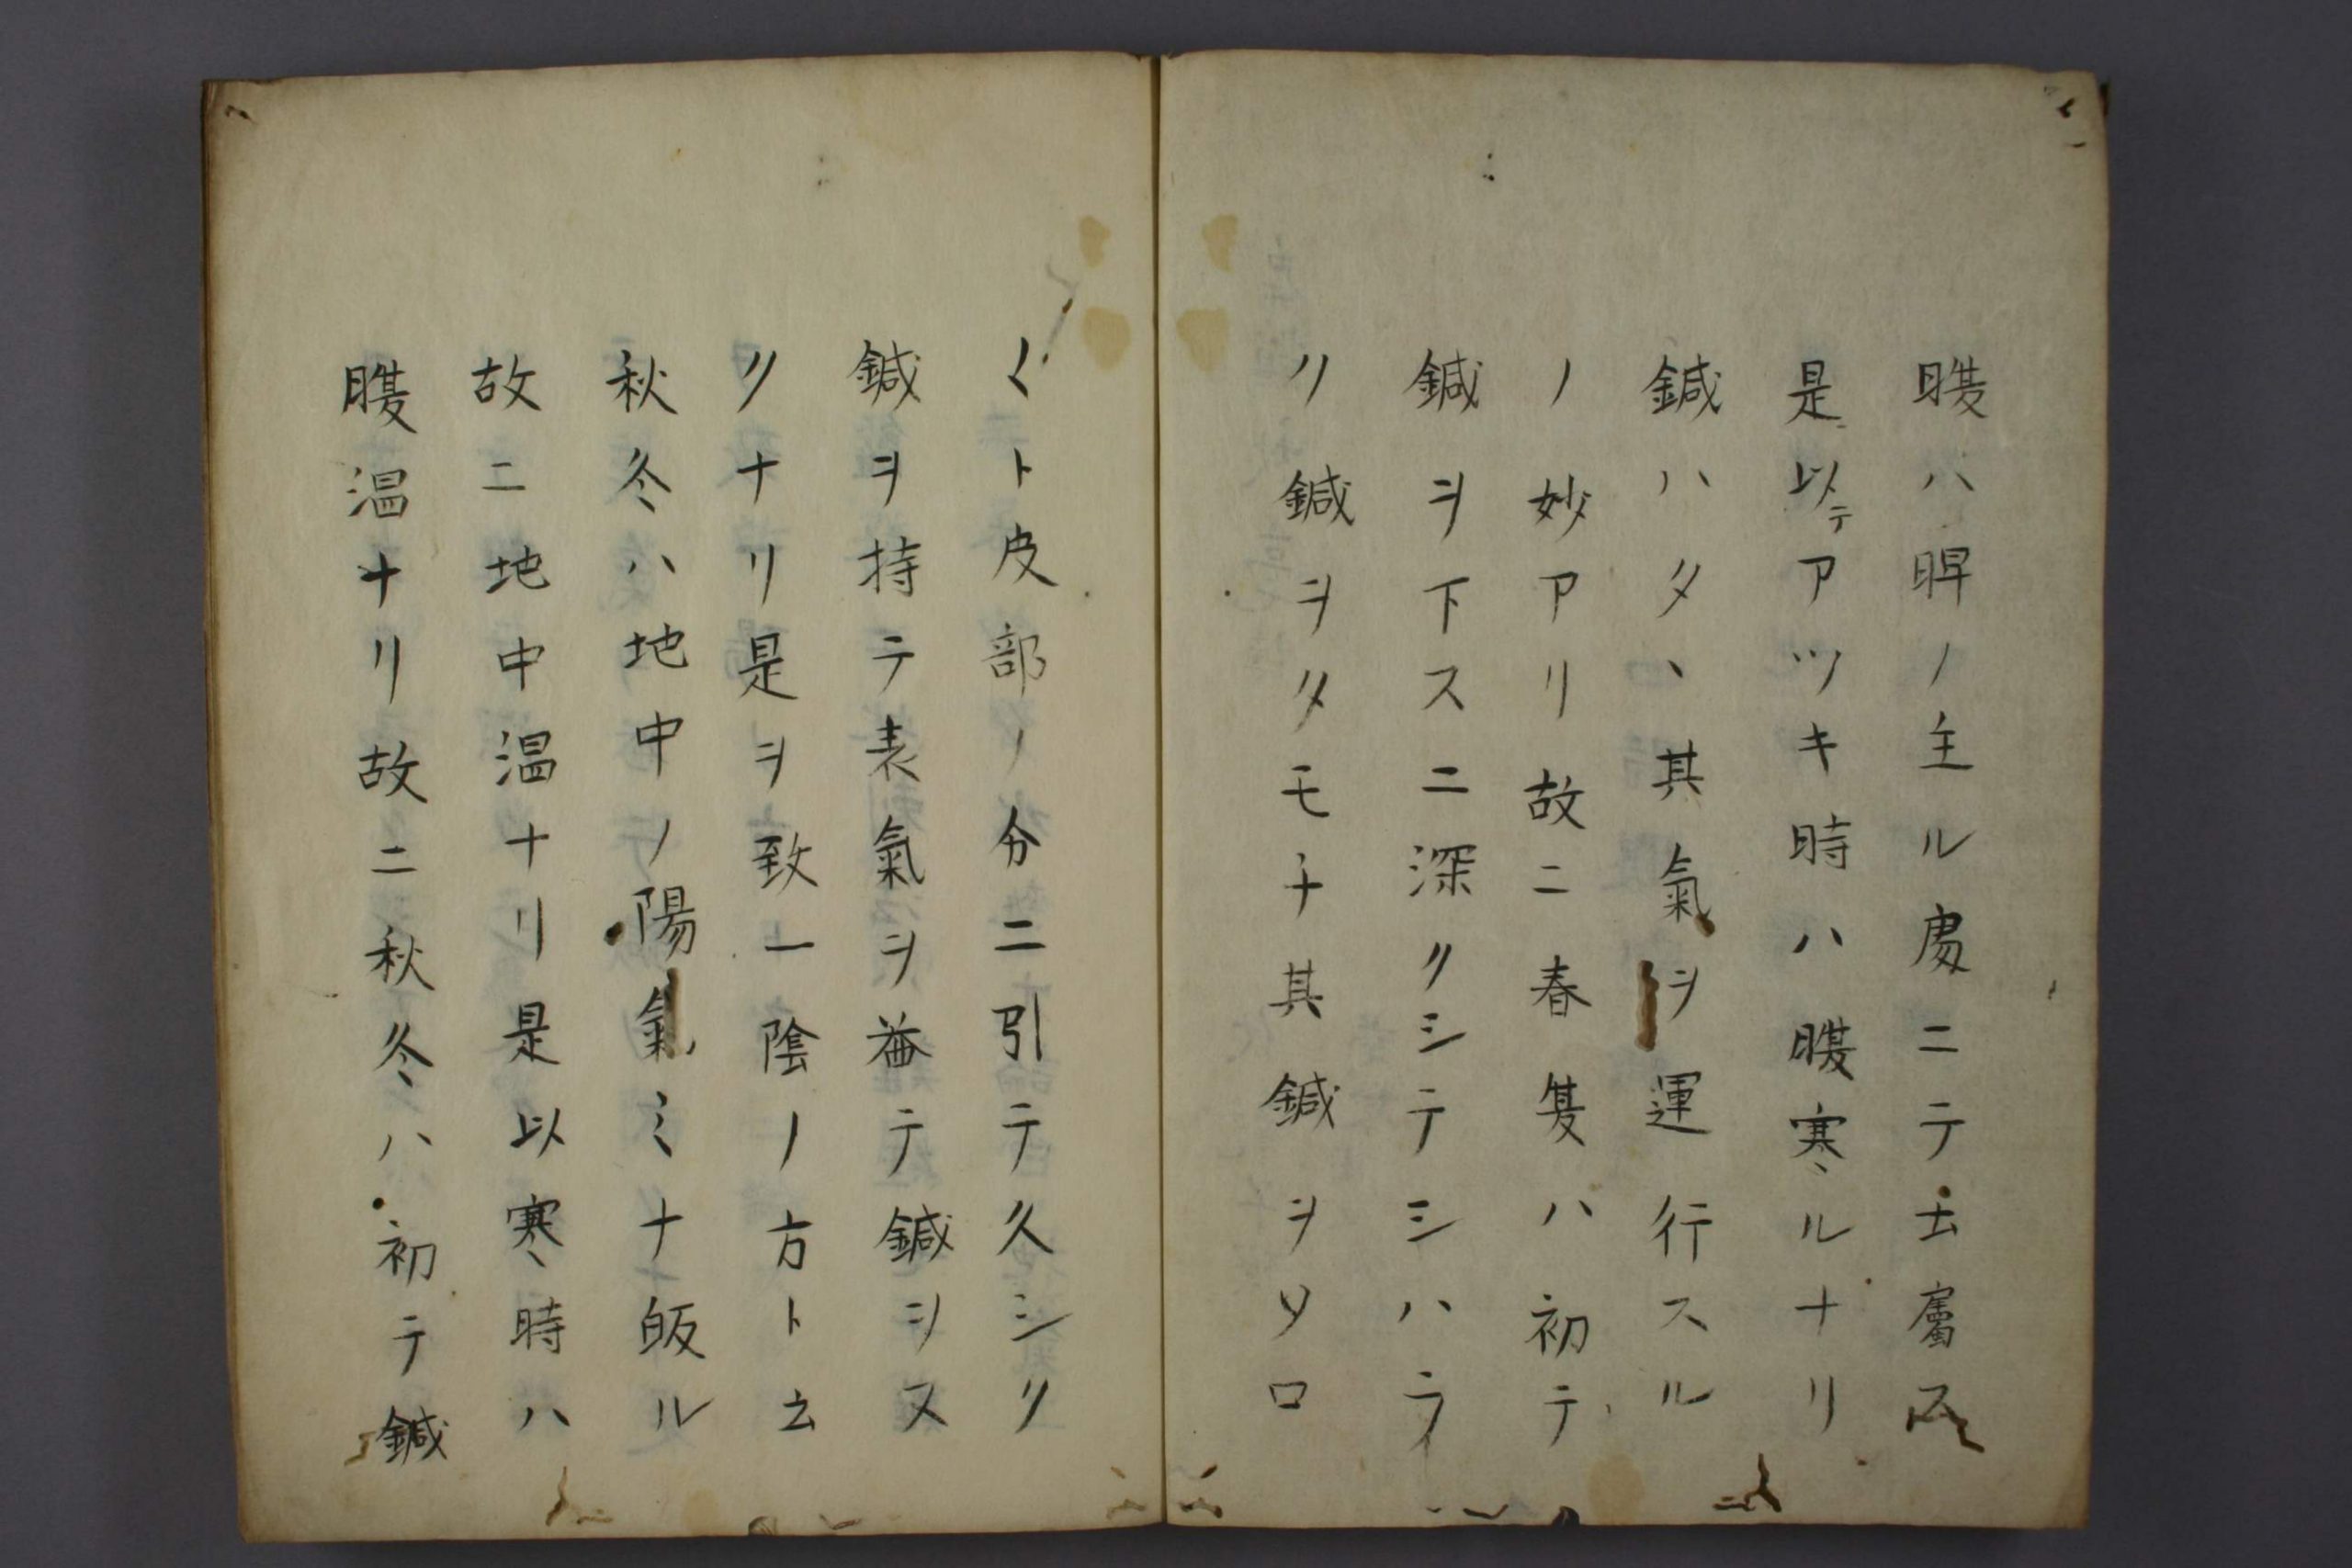 腹ハ脾ノ主ル處ニテ土屬ス
是以テアツキ時ハ腹寒ルナリ
鍼ハタヽ其氣ヲ運行スル
ノ妙アリ故ニ春夏ハ初テ
鍼ヲ下スニ深クシテシハラ
ク鍼ヲタモチ其鍼ヲソロ
〱ト皮部ノ分ニ引テ久シク
鍼ヲ持テ表氣ヲ益テ鍼ヲヌ
クナリ是ヲ致一陰ノ方ト云
秋冬ハ地中ノ陽氣ミナ皈ル
故ニ地中温ナリ是以寒時ハ
腹温ナリ故ニ秋冬ハ初テ鍼